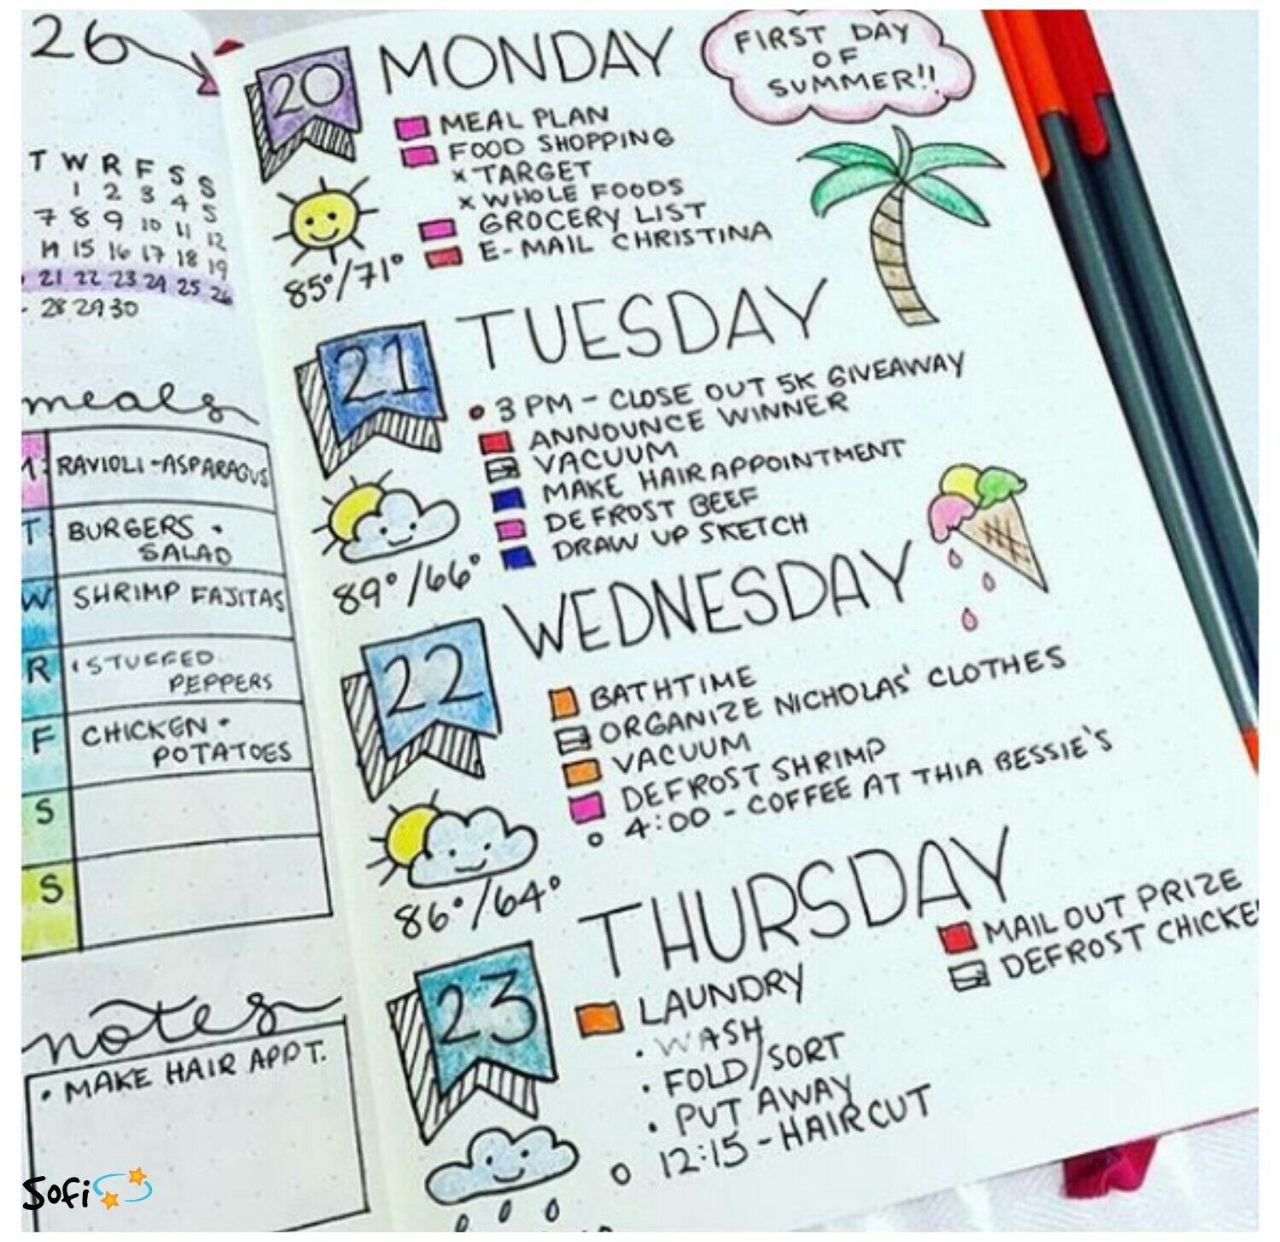 26
T W R F S S
1 2 3 4 5
7 8 9 10 11 12
14 15 16 17 18 19
21 22 23 24 25 26
28 29 30
meals
M: RAVIOLI - ASPARAGUS
T BURGERS +
SALAD
W SHRIMP FAJITAS
R STUFFED
PEPPERS
F CHICKEN +
POTATOES
S
S
notes
• MAKE HAIR APPT.
Sofi
20 MONDAY
FIRST DAY
OF
SUMMER!!
MEAL PLAN
FOOD SHOPPING
x TARGET
x WHOLE FOODS
GROCERY LIST
E-MAIL CHRISTINA
85°/71°
21 TUESDAY
• 3 PM - CLOSE OUT 5K GIVEAWAY
ANNOUNCE WINNER
VACUUM
MAKE HAIR APPOINTMENT
DEFROST BEEF
DRAW UP SKETCH
89°/66°
22 WEDNESDAY
BATHTIME
ORGANIZE NICHOLAS' CLOTHES
VACUUM
DEFROST SHRIMP
4:00 - COFFEE AT THIA BESSIE'S
86°/64°
23 THURSDAY
LAUNDRY
• WASH
• FOLD/SORT
• PUT AWAY
12:15 - HAIRCUT
MAIL OUT PRIZE
DEFROST CHICKE